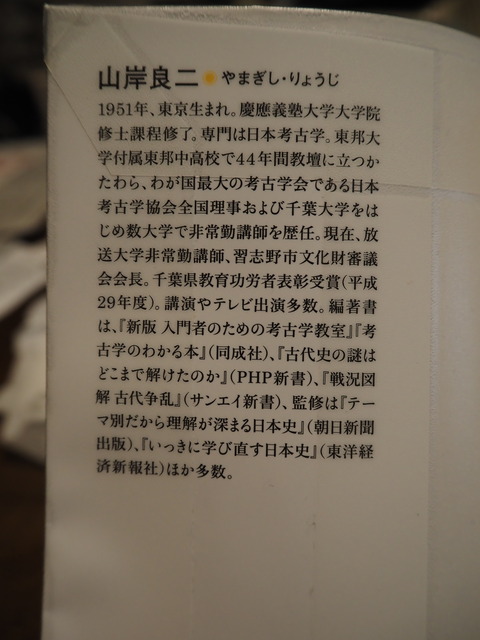 山岸良二●やまぎし・りょうじ
1951年、東京生まれ。慶應義塾大学大学院
修士課程修了。専門は日本考古学。東邦大
学付属東邦中高校で44年間教壇に立つか
たわら、わが国最大の考古学会である日本
考古学協会全国理事および千葉大学をは
じめ数大学で非常勤講師を歴任。現在、放
送大学非常勤講師、習志野市文化財審議
会会長。千葉県教育功労者表彰受賞(平成
29年度)。講演やテレビ出演多数。編著書
は、『新版 入門者のための考古学教室』『考
古学のわかる本』(同成社)、『古代史の謎は
どこまで解けたのか』(PHP新書)、『戦況図
解 古代争乱』(サンエイ新書)、監修は『テー
マ別だから理解が深まる日本史』(朝日新聞
出版)、『いっきに学び直す日本史』(東洋経
済新報社)ほか多数。